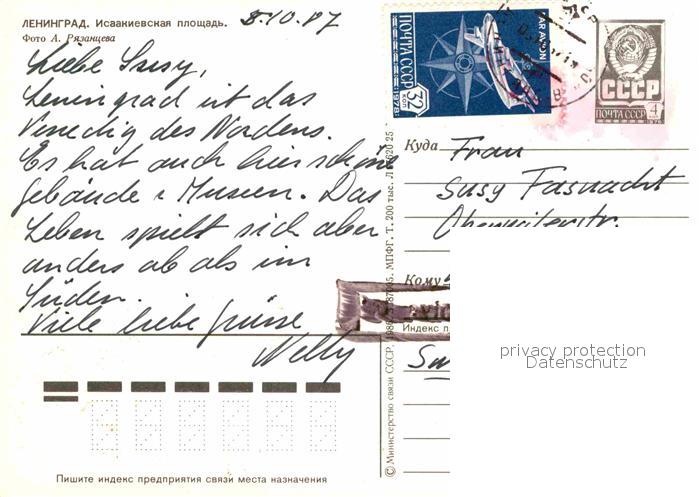 ЛЕНИНГРАД. Исаакиевская площадь.
Фото А. Рязанцева
8.10.87
Liebe Susy,
Leningrad ist das
Venedig des Nordens.
Es hat auch hier schöne
Gebäude & Museen. Das
Leben spielt sich aber
anders ab als im
Süden.
Viele liebe Grüsse
Nelly
Пишите индекс предприятия связи места назначения
© Министерство связи СССР, 1986. МПФГ. Т. 200 тыс.
ПОЧТА СССР
PAR AVION
32
КОП
1978
СССР
ПОЧТА СССР
4
Куда
Frau
Susy Fasnacht
Кому
Индекс п
privacy protection
Datenschutz